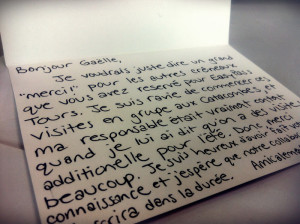 Bonjour Gaëlle,
Je voudrais juste dire un grand
"merci!" pour les autres créneaux
que vous avez reservé pour EasyPass
Tours. Je suis ravie de commencer ces
visites en groupe aux Catacombes, et
ma responsable était vraiment contente
quand je lui ai dit qu'on a des visites
additionelle pour l'été. Donc merci
beaucoup. Je suis heureux d'avoir fait votre
connaissance et j'espère que notre collabo
dans la durée. Amicalement